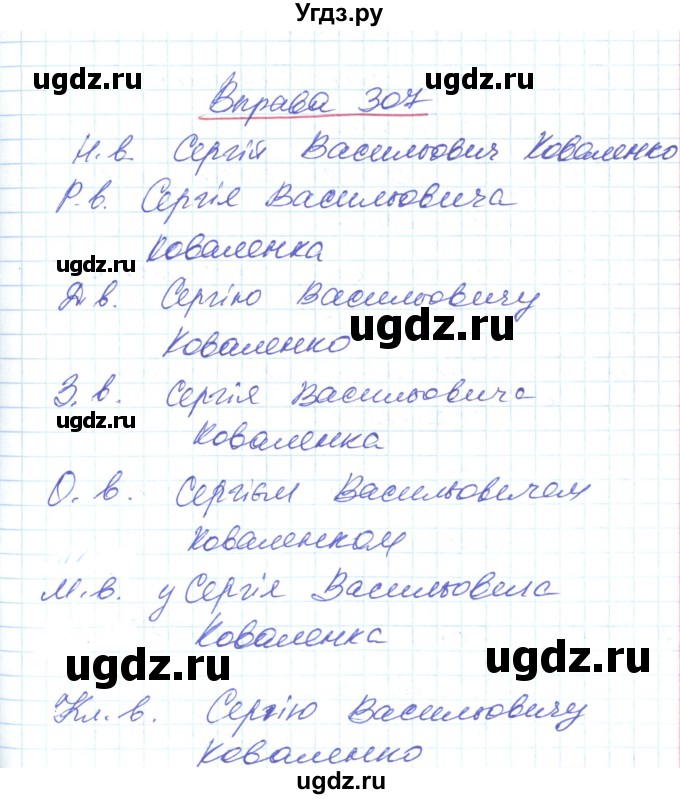 Угдз.ру
ugdz.ru
Вправа 307
Н.в. Сергій Васильович Коваленко
Р.в. Сергія Васильовича
Коваленка
ugdz.ru
Д.в. Сергію Васильовичу
ugdz.ru
Коваленко
З.в. Сергія Васильовича
ugdz.ru
Коваленка
О.в. Сергієм Васильовичем
Коваленком
ugdz.ru
М.в. у Сергія
Коваленка
ugdz.ru
ugdz.ru
Кл.в. Сергію Васильовичу
Коваленко
ugdz.ru